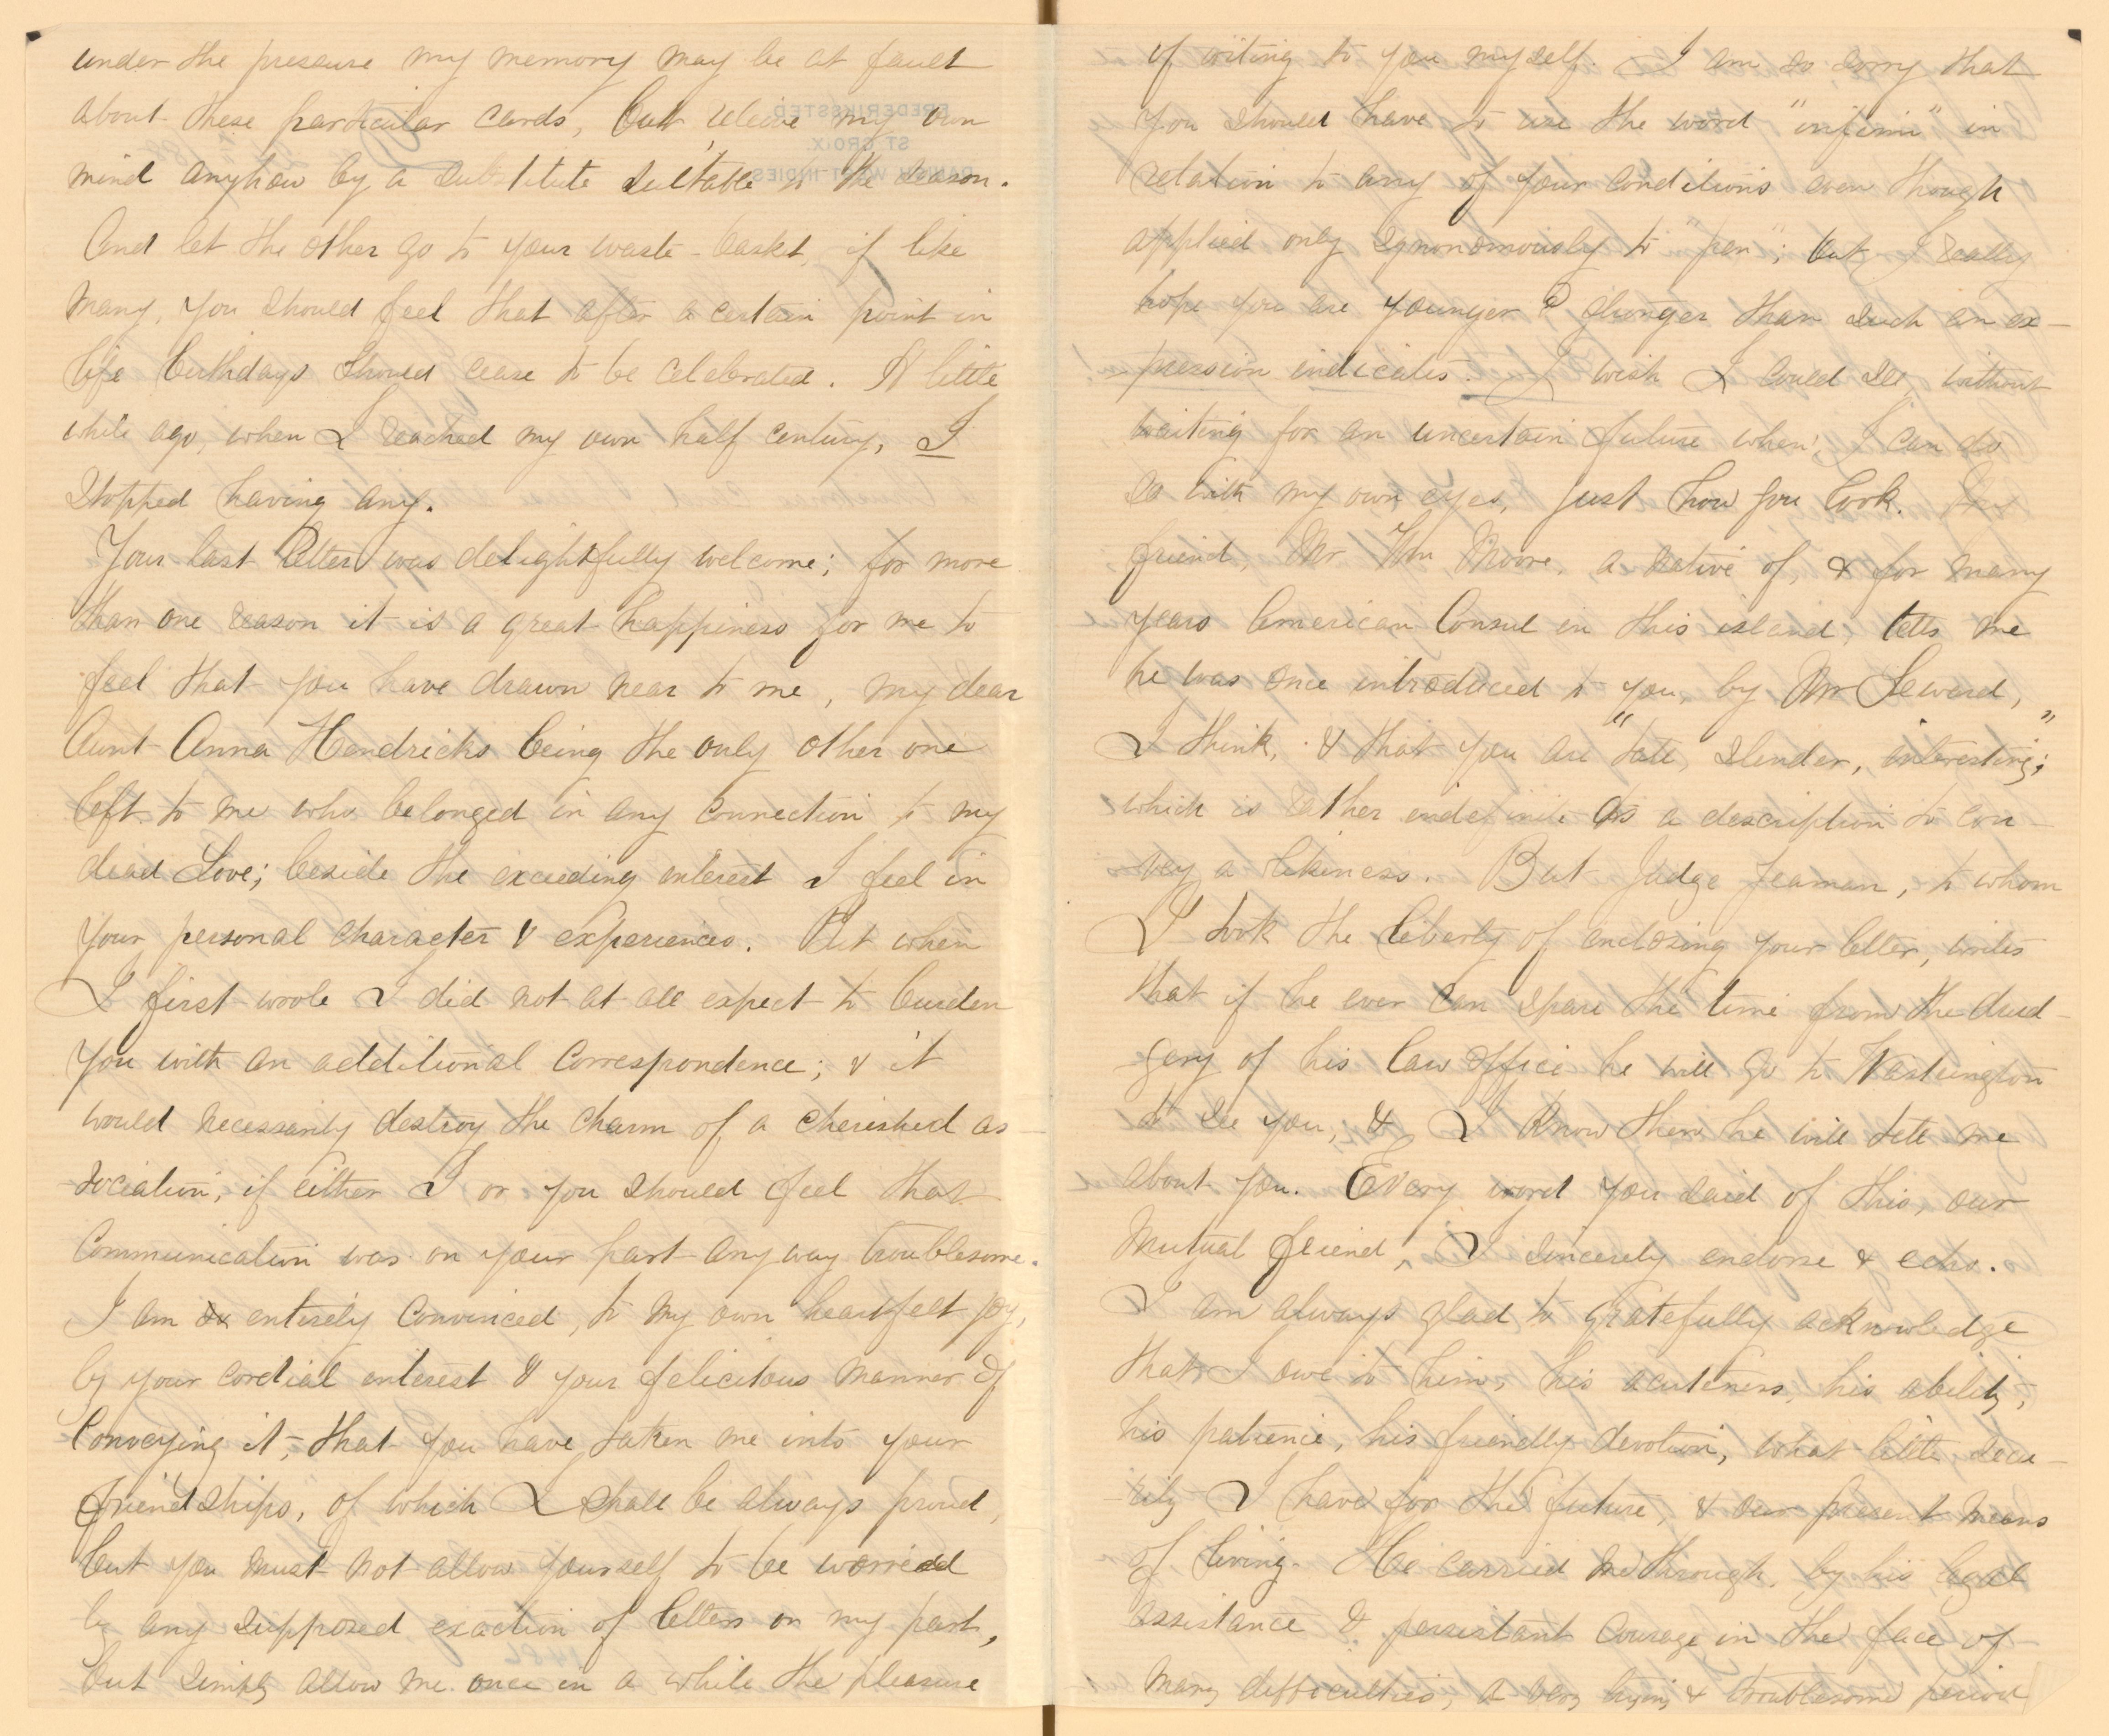 under the pressure my memory may be at fault
about these particular cards, but relieve my own
mind anyhow by a substitute suitable to the season.
And let the other go to your waste-basket, if like
many, you should feel that after a certain point in
life birthdays should cease to be celebrated. A little
while ago, when I reached my own half century, I
stopped having any.
Your last letter was delightfully welcome; for more
than one reason it is a great happiness for me to
feel that you have drawn near to me, my dear
Aunt Anna Hendricks being the only other one
left to me who belonged in any connection to my
dead Love; beside the exceeding interest I feel in
your personal character & experiences. But when
I first wrote I did not at all expect to burden
you with an additional correspondence; & it
would necessarily destroy the charm of a cherished as-
sociation, if either I or you should feel that
communication was on your part anyway troublesome.
I am so entirely convinced, to my own heartfelt joy,
by your cordial interest & your felicitous manner of
conveying it, that you have taken me into your
friendships, of which I shall be always proud,
but you must not allow yourself to be worried
by any supposed exaction of letters on my part,
but simply allow me once in a while the pleasure
of writing to you myself. I am so sorry that
you should have to use the word "infirm" in
relation to any of your conditions even though
applied only synonomously to "pen"; but I really
hope you are younger & stronger than such an ex-
pression indicates. I wish I could see, without
waiting for an uncertain future when I can do
so with my own eyes, just how you look. My
friend, Mr Wm Moore, a native of, & for many
years American Consul in this island, tells me
he was once introduced to you, by Mr Seward,
I think, & that you are "tall, slender, interesting";
which is rather indefinite as a description to con-
vey a likeness. But Judge Jeaman, to whom
I took the liberty of enclosing your letter, writes
that if he ever can spare the time from the drud-
gery of his law office he will go to Washington
to see you, & I know then he will tell me
about you. Every word you said of this, our
mutual friend, I sincerely endorse & echo.
I am always glad to gratefully acknowledge
that I owe to him, his acuteness, his ability,
his patience, his friendly devotion, what little secu-
rity I have for the future, & our present means
of living. He carried me through, by his legal
assistance & persistant courage in the face of
many difficulties, a very trying & troublesome period